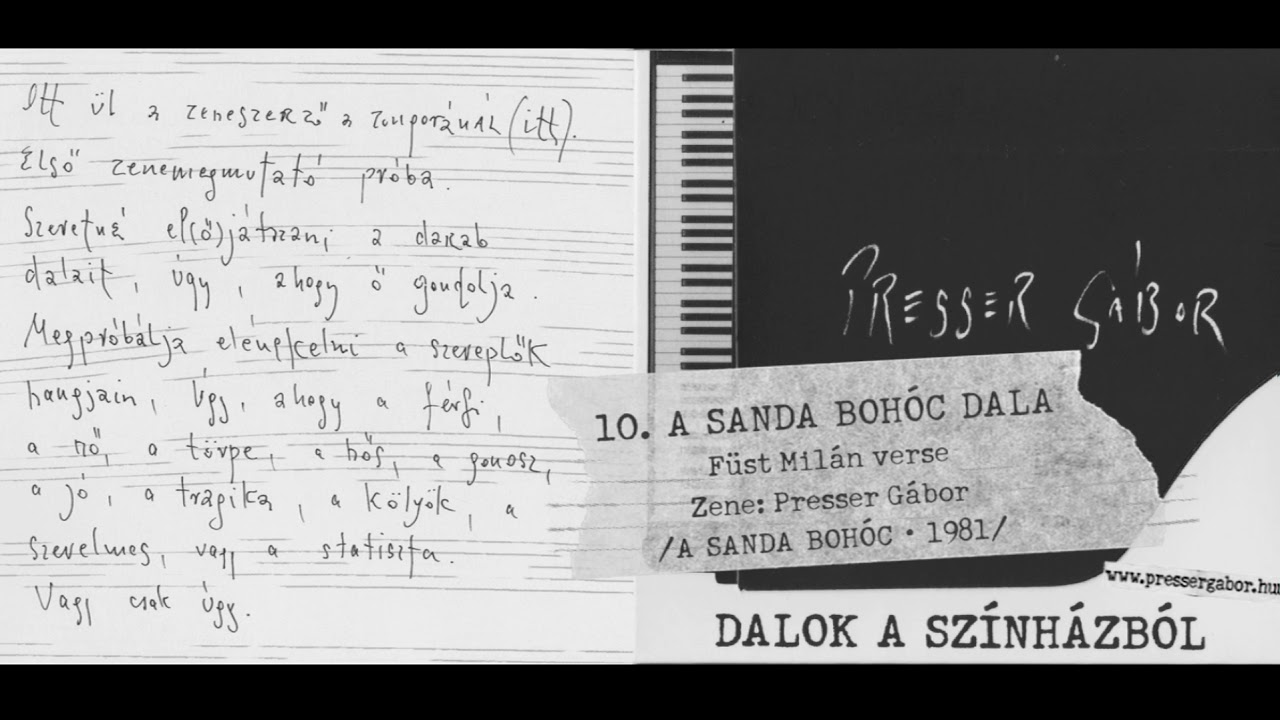 Itt ül a zeneszerző a zongoránál (itt).
Első zenemegmutató próba.
Szeretné el(ő)játszani a darab
dalait, úgy, ahogy ő gondolja.
Megpróbálja elénekelni a szereplők
hangjain, úgy, ahogy a férfi,
a nő, a törpe, a hős, a gonosz,
a jó, a tragika, a kölyök, a
szerelmes, vagy a statiszta.
Vagy csak úgy.
PRESSER GÁBOR
10. A SANDA BOHÓC DALA
Füst Milán verse
Zene: Presser Gábor
/A SANDA BOHÓC · 1981/
www.pressergabor.hu
DALOK A SZÍNHÁZBÓL